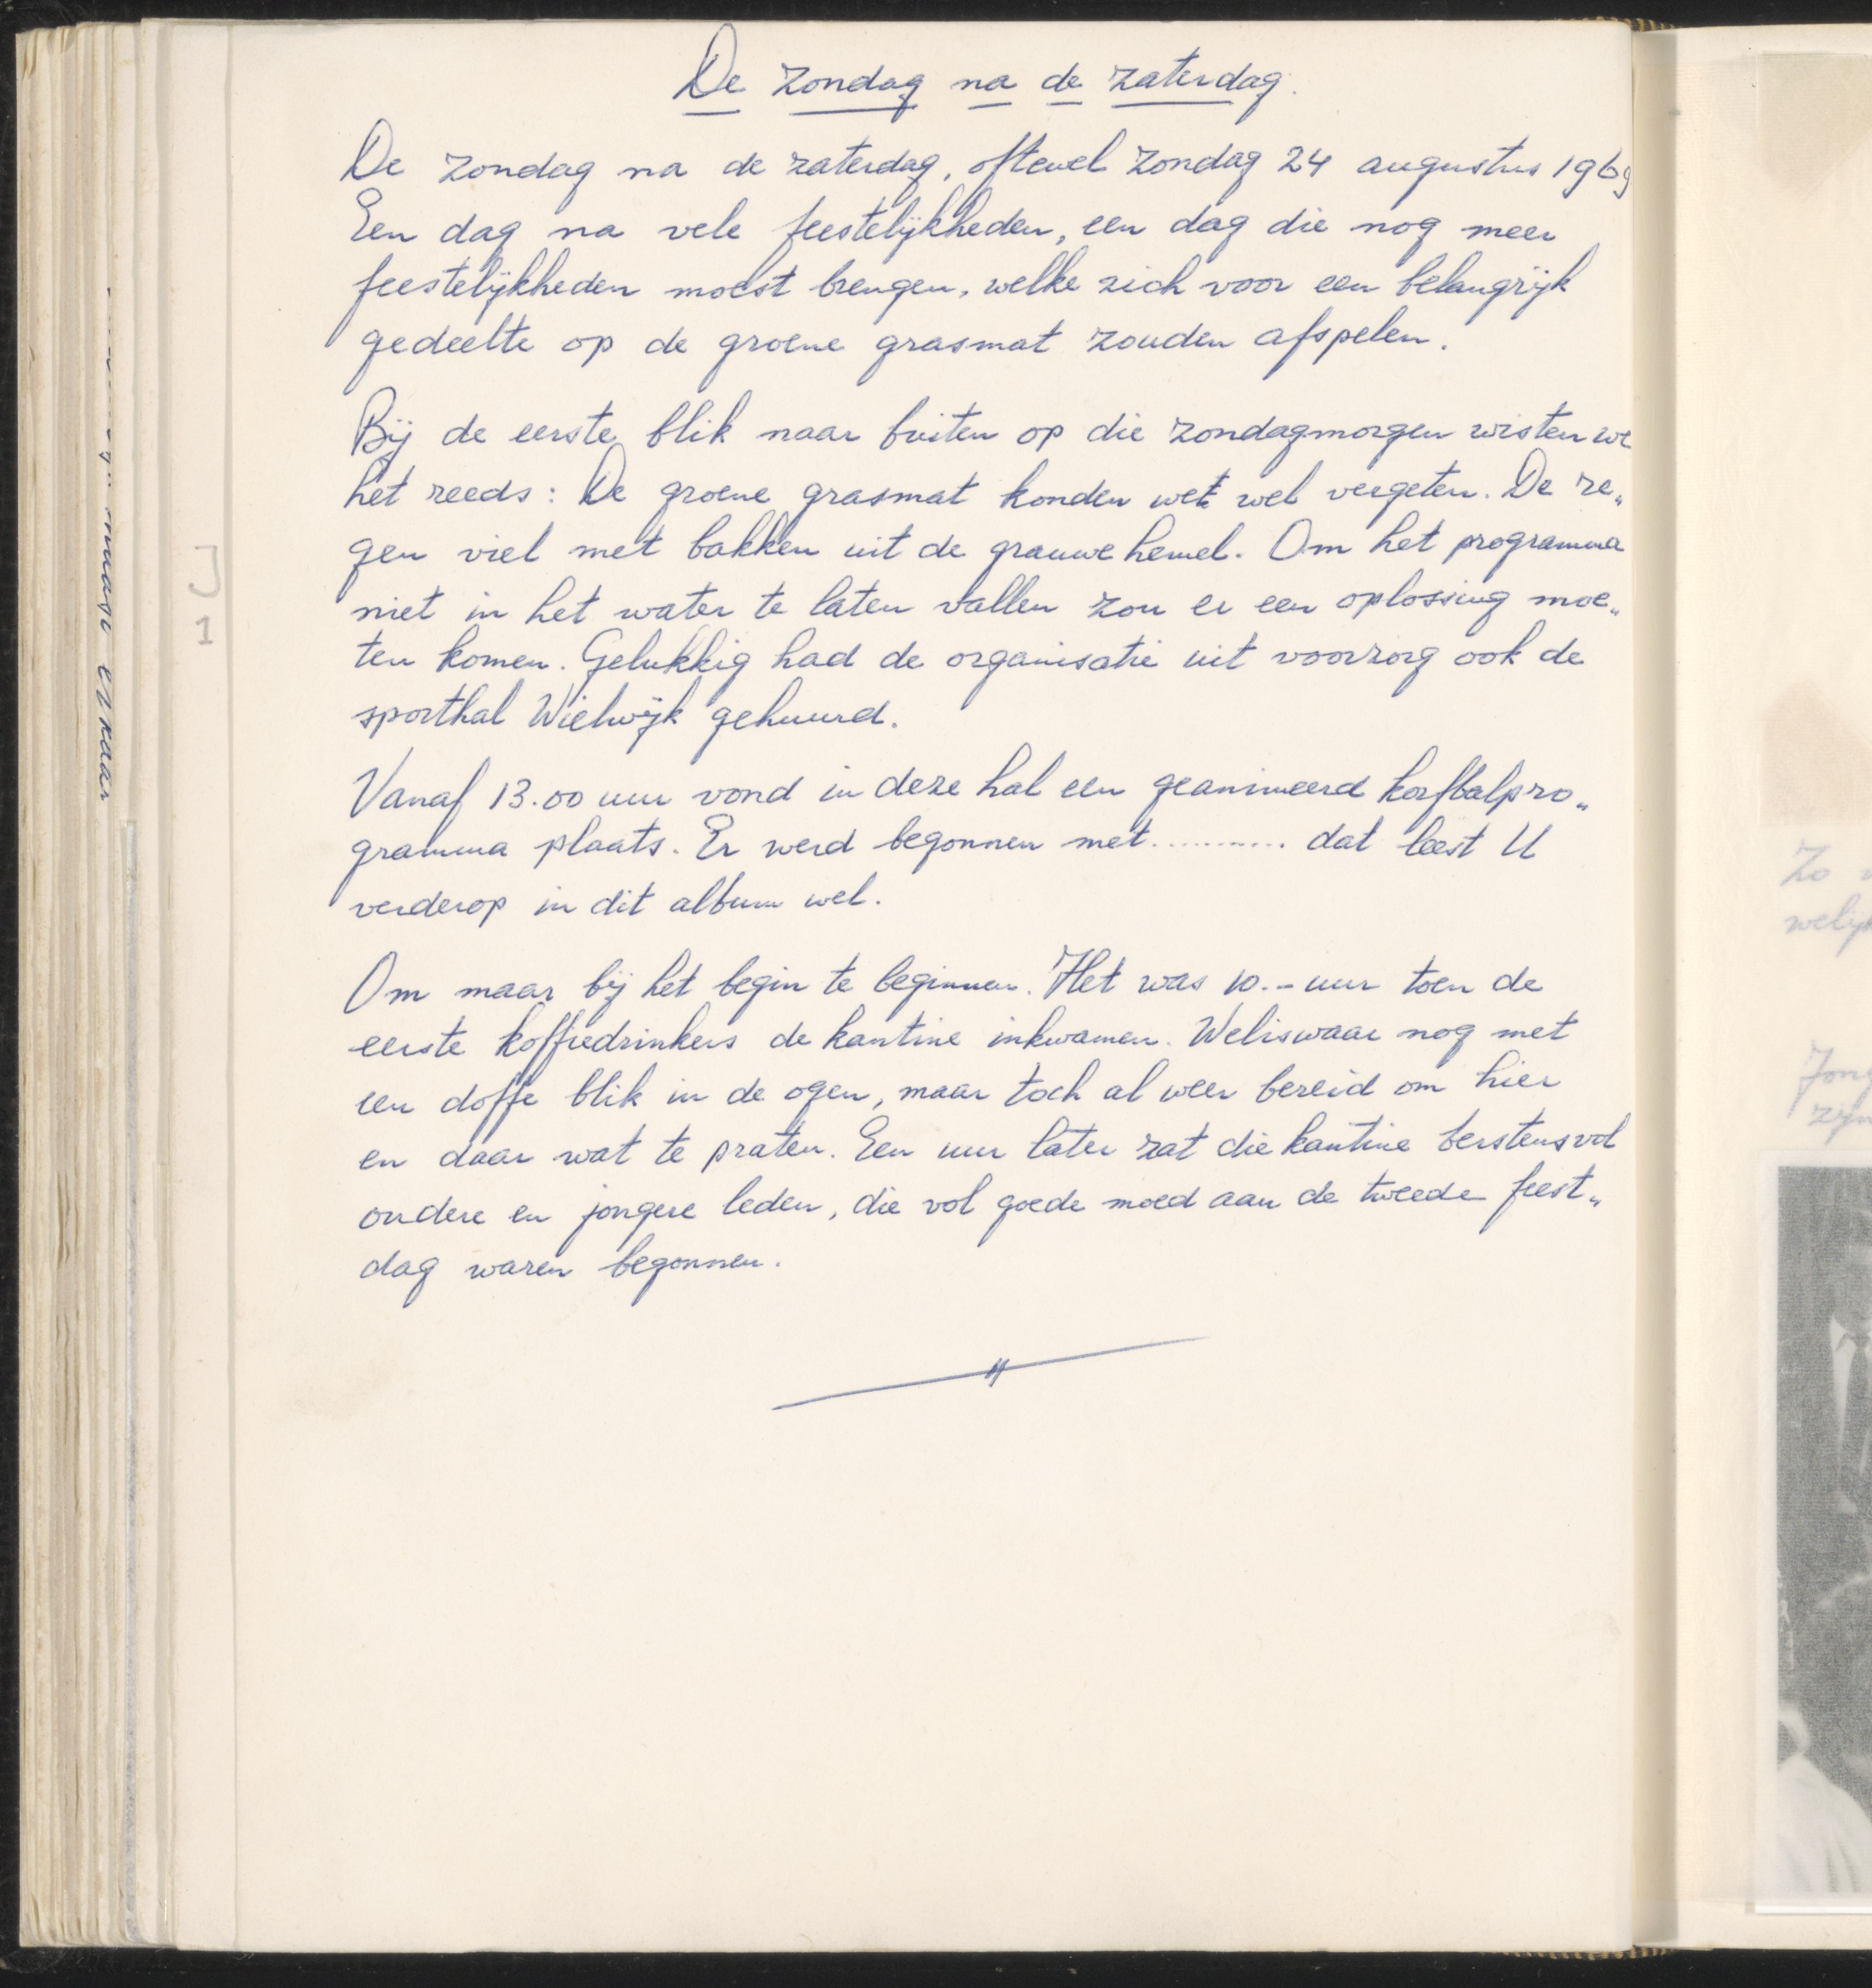 De zondag na de zaterdag.
De zondag na de zaterdag, oftewel zondag 24 augustus 1969
Een dag na vele feestelijkheden, een dag die nog meer
feestelijkheden moest brengen, welke zich voor een belangrijk
gedeelte op de groene grasmat zouden afspelen.
Bij de eerste blik naar buiten op die zondagmorgen wisten we
het reeds: De groene grasmat konden wet wel vergeten. De re„
gen viel met bakken uit de grauwe hemel. Om het programma
niet in het water te laten vallen zou er een oplossing moe„
ten komen. Gelukkig had de organisatie uit voorzorg ook de
sporthal Wielwijk gehuurd.
Vanaf 13.00 uur vond in deze hal een geanimeerd korfbalpro„
gramma plaats. Er werd begonnen met.......... dat leest U
verderop in dit album wel.
Om maar bij het begin te beginnen. Het was 10.- uur toen de
eerste koffiedrinkers de kantine inkwamen. Weliswaar nog met
een doffe blik in de ogen, maar toch al weer bereid om hier
en daar wat te praten. Een uur later zat die kantine berstensvol
oudere en jongere leden, die vol goede moed aan de tweede feest„
dag waren begonnen.
J
1
elkaar
Zo